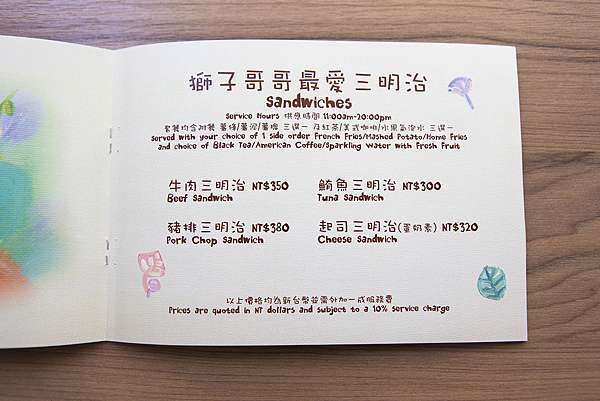 獅子哥哥最愛三明治
Sandwiches
Service Hours 供應時間 11:00am-20:00pm
套餐均含附餐 薯條/薯泥/薯塊 三選一 及紅茶/美式咖啡/水果氣泡水 三選一
Served with your choice of 1 side order French Fries/Mashed Potato/Home Fries
and choice of Black Tea/American Coffee/Sparkling Water with Fresh Fruit
牛肉三明治 NT$350
Beef Sandwich
鮪魚三明治 NT$300
Tuna Sandwich
豬排三明治 NT$380
Pork Chop Sandwich
起司三明治(蛋奶素) NT$320
Cheese Sandwich
以上價格均為新台幣並需外加一成服務費
Prices are quoted in NT dollars and subject to a 10% service charge